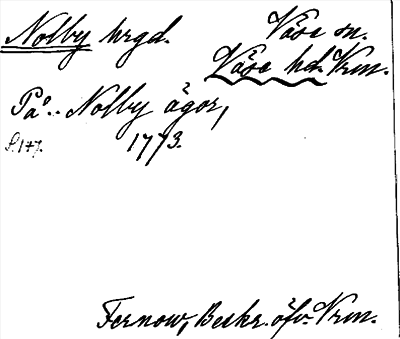 Nolby hrgd.
Väse sn.
Väse hd. Vrm.
På.. Nolby ägor,
S. 147.
1773.
Fernow, Beskr. öfv. Vrm.